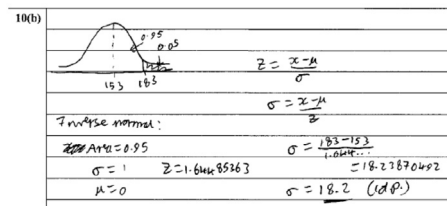 10(b)
0.95
0.05
153 183
z = x-μ / σ
σ = x-μ / z
Inverse normal:
Area = 0.95
σ = 1 Z = 1.64485363
μ = 0
σ = 183-153 / 1.644...
= 18.23870492
σ = 18.2 (1d.p.)